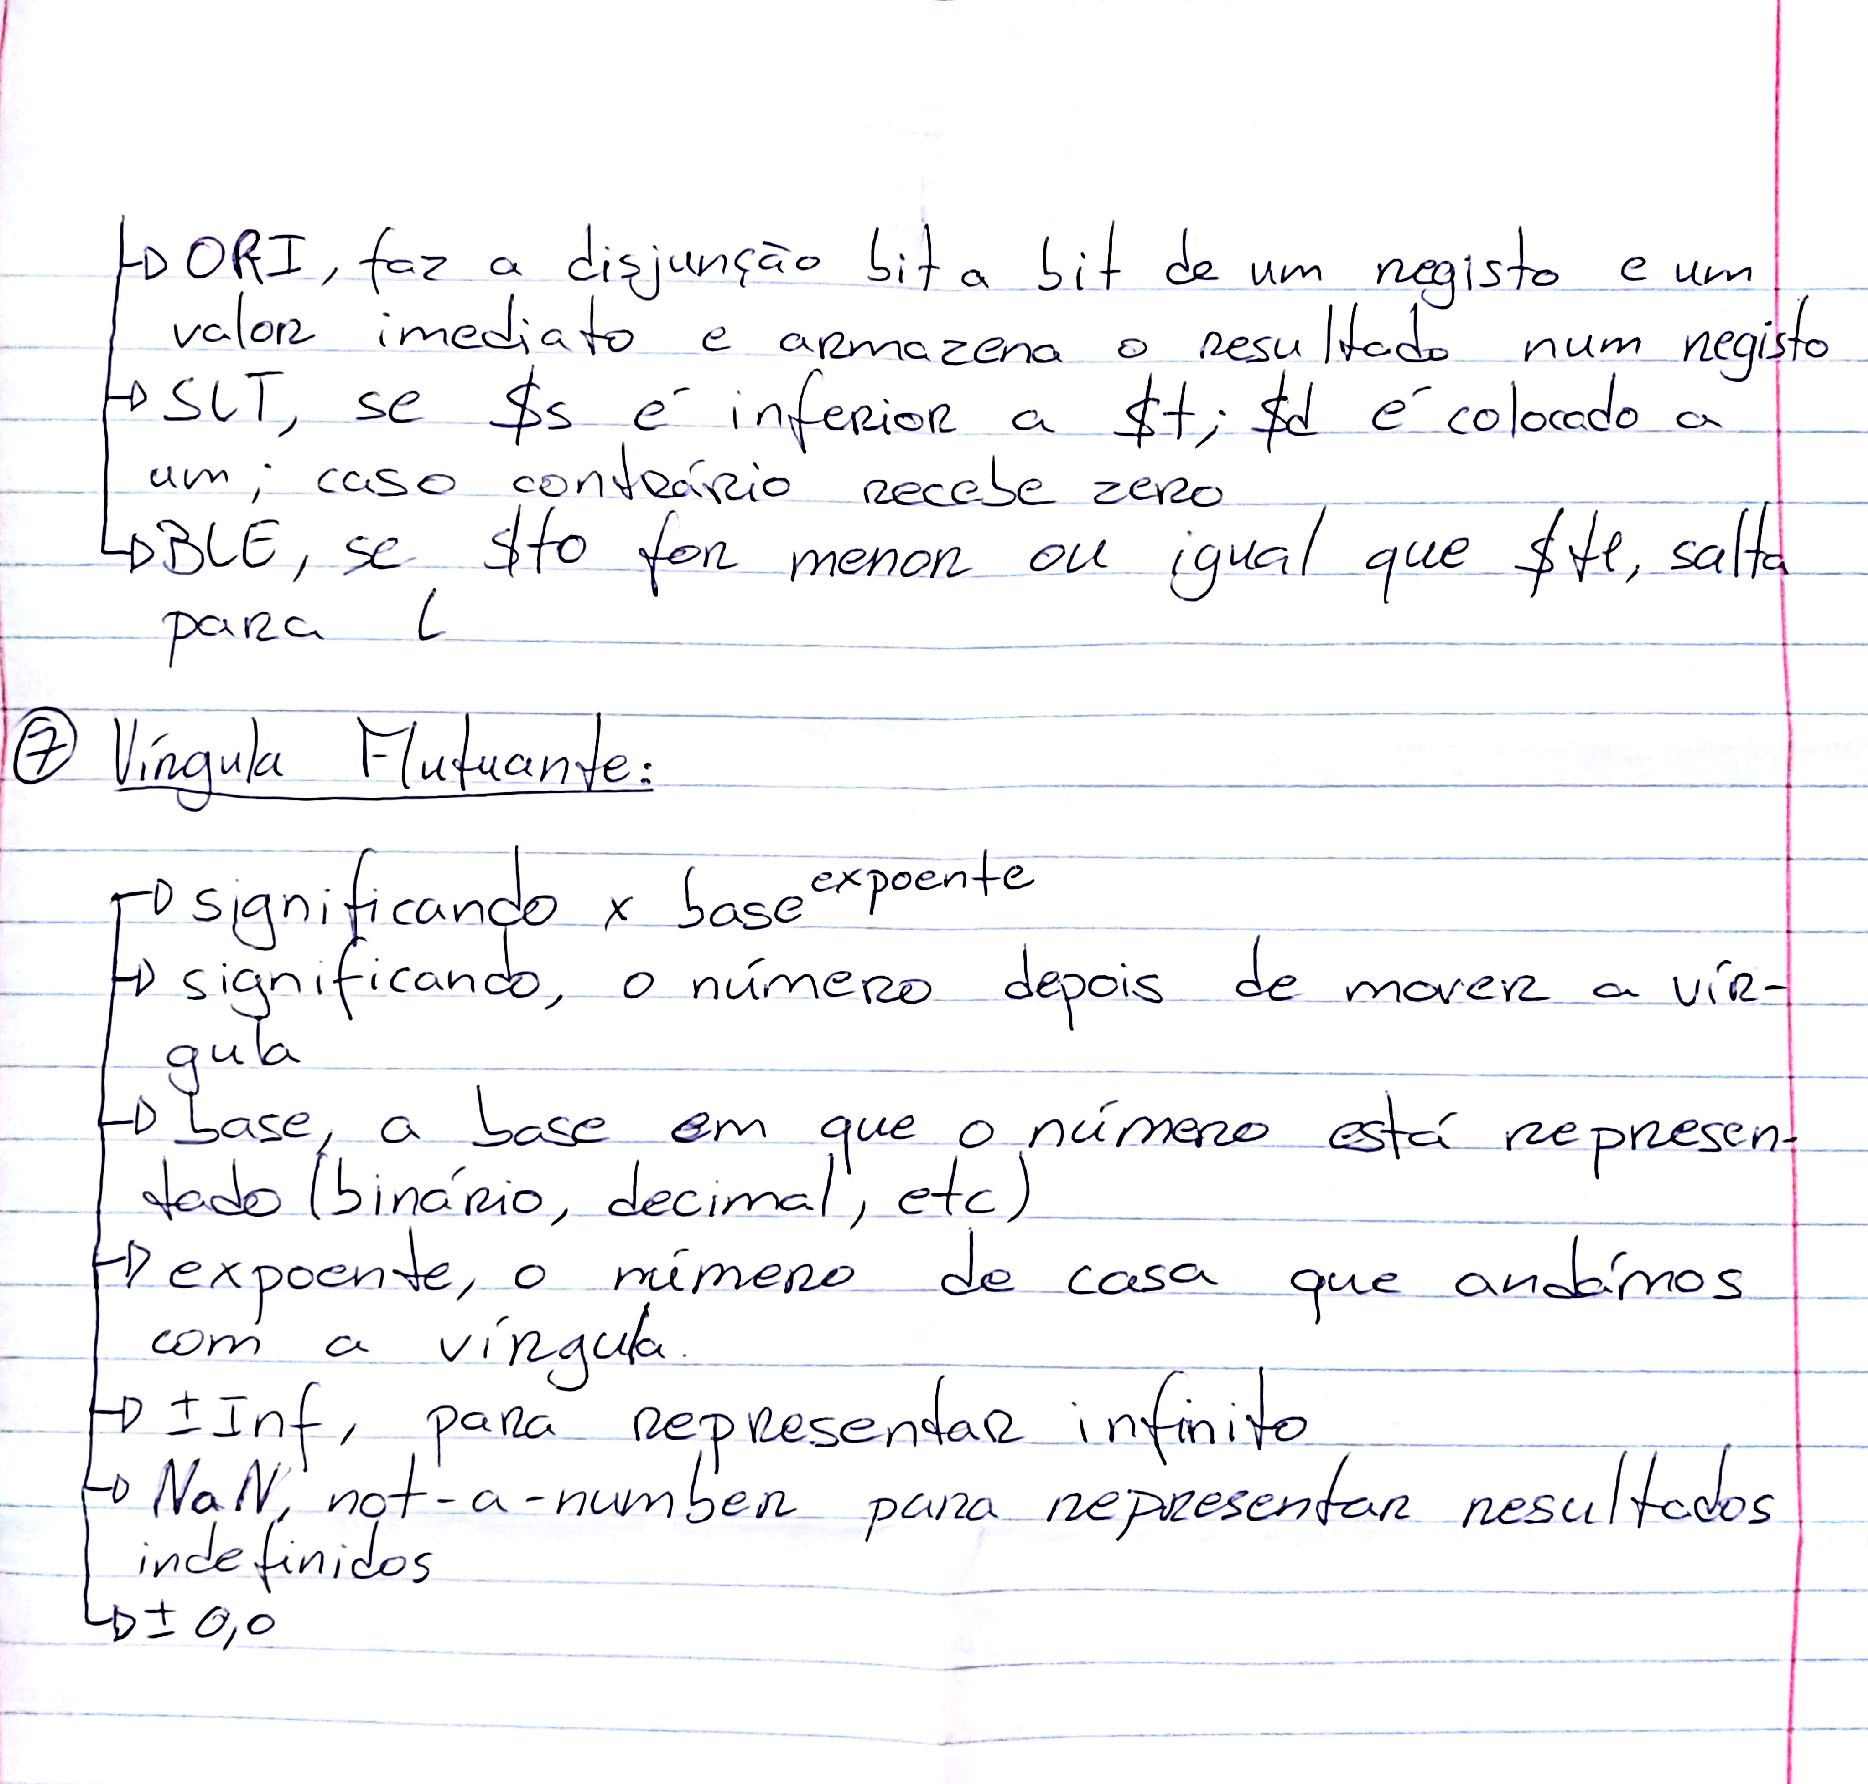 ORI, faz a disjunção bit a bit de um registo e um
valor imediato e armazena o resultado num registo
SLT, se $s é inferior a $t; $d é colocado a
um; caso contrário recebe zero
BLE, se $t0 for menor ou igual que $t1, salta
para L
⑦ Vírgula Flutuante:
significando x base^expoente
significando, o número depois de mover a vír-
gula
base, a base em que o número está represen-
tado (binário, decimal, etc)
expoente, o número de casa que andámos
com a vírgula.
±Inf, para representar infinito
NaN, not-a-number para representar resultados
indefinidos
± 0,0